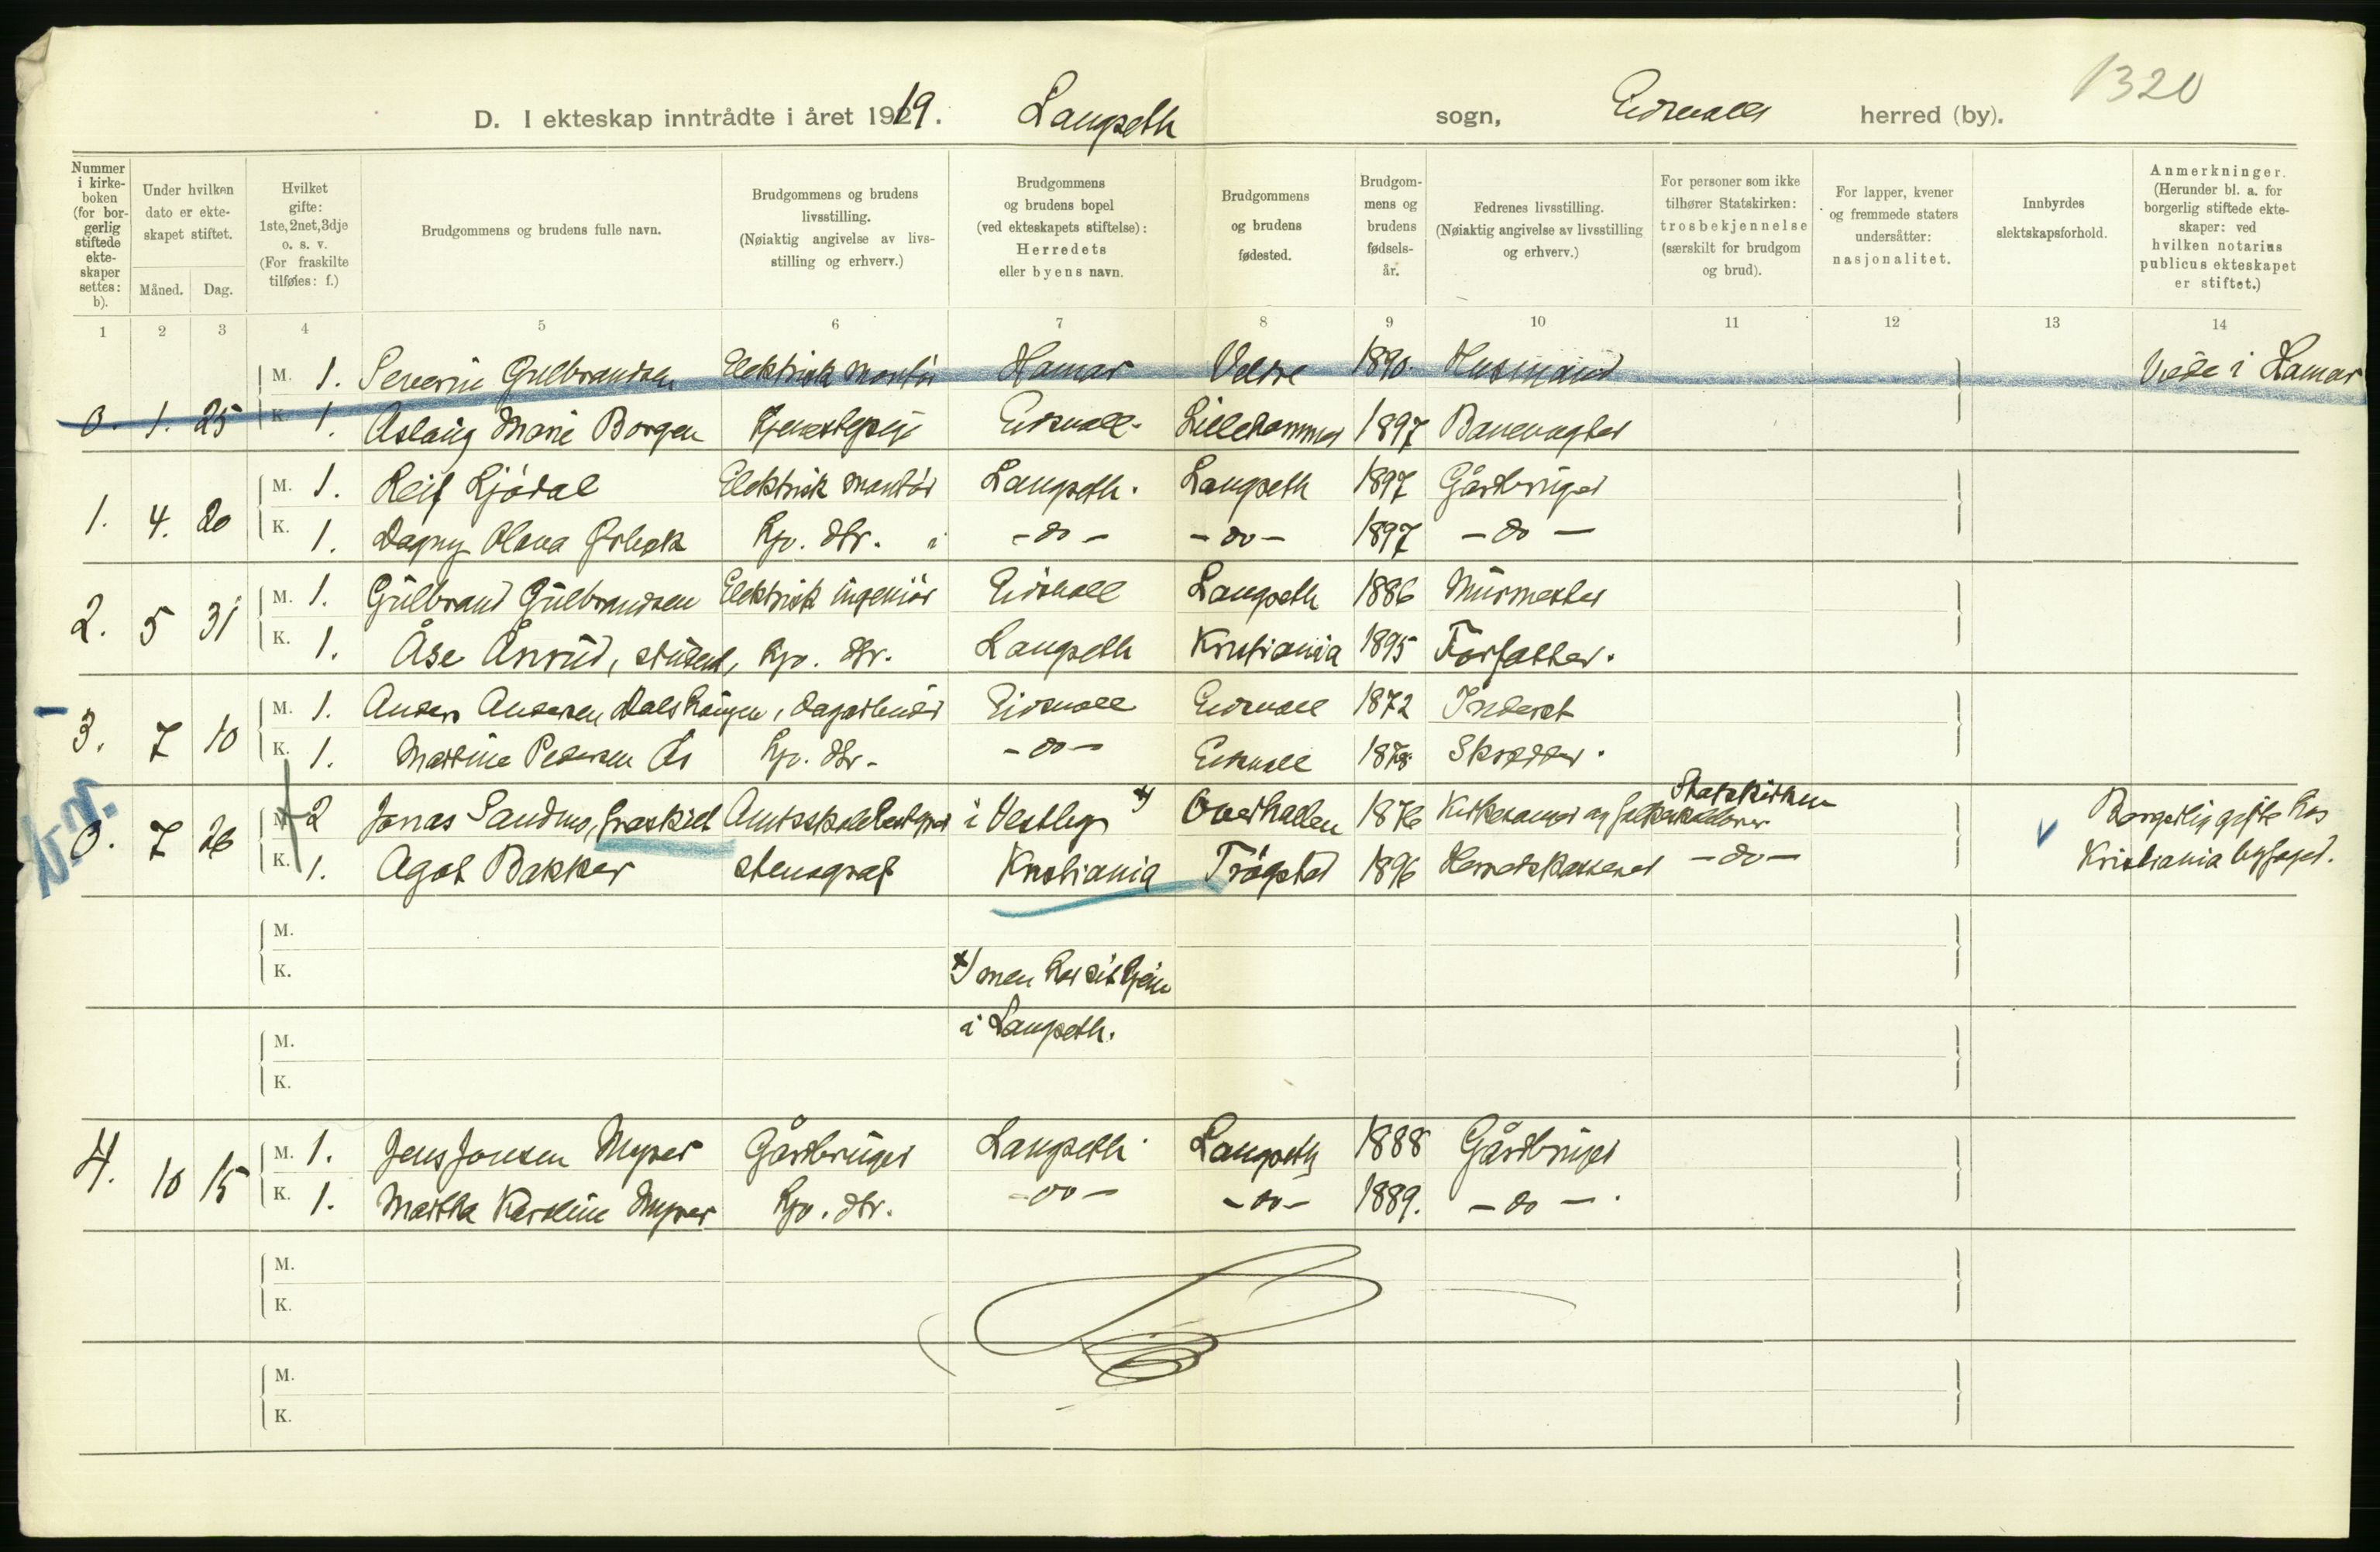 1320
D. I ekteskap inntrådte i året 1919. Langseth sogn, Eidsvoll herred (by).
Nummer i kirkeboken (for borgerlig stiftede ekteskaper settes: b).
Under hvilken dato er ekteskapet stiftet.
Måned. Dag.
Hvilket gifte: 1ste, 2net, 3dje o. s. v. (For fraskilte tilføies: f.)
Brudgommens og brudens fulle navn.
Brudgommens og brudens livsstilling. (Nøiaktig angivelse av livsstilling og erhverv.)
Brudgommens og brudens bopel (ved ekteskapets stiftelse): Herredets eller byens navn.
Brudgommens og brudens fødested.
Brudgommens og brudens fødselsår.
Fedrenes livsstilling. (Nøiaktig angivelse av livsstilling og erhverv.)
For personer som ikke tilhører Statskirken: trosbekjennelse (særskilt for brudgom og brud).
For lapper, kvener og fremmede staters undersåtter: nasjonalitet.
Innbyrdes slektskapsforhold.
Anmerkninger. (Herunder bl. a. for borgerlig stiftede ekteskaper: ved hvilken notarius publicus ekteskapet er stiftet.)
1 2 3 4 5 6 7 8 9 10 11 12 13 14
M. 1. Severin Gulbrandsen Elektrisk montør Hamar Veldre 1890. Husmand Viede i Hamar
0. 1. 25 K. 1. Aslaug Marie Borgen Eidsvoll. Lillehammer 1897 Banevagter
M. 1. Leif Ljødal Elektrisk montör Langseth. Langseth 1897 Gårdbruger
1. 4. 20 K. 1. Dagny Olava Ørbek Hjv. dtr. - do - - do - 1897 - do -
M. 1. Gülbrand Gülbrandsen Elektrisk ingeniör Eidsvoll Langseth 1886 Mürmester
2. 5 31 K. 1. Åse Ånrüd, stüdent, Hjv. dtr. Langseth Kristiania 1895 Forfatter.
M. 1. Anders Andersen Dalshaugen, dagarbeider Eidsvoll Eidsvoll 1872 Inderst
3. 7 10 K. 1. Martine Pedersen Ås Hjv. dtr. - do - Eidsvoll 1878 Skrædder.
M. 2 Jonas Sandmo, fraskilt Amtsskolebestyrer i Vestby x) Overhallen 1876 Kirkesanger og Statskirken
0. 7 26 K. 1. Agot Bakker stenograf Kristiania Trøgstad 1896 Herredskasserer - do -
Borgerlig gifte hos
Kristiania byfoged.
M.
K.
x) men har sit hjem
i Langseth.
M.
K.
M. 1. Jens Jonsen Myrer Gårdbrüger Langseth Langseth 1888 Gårdbrüger
4. 10 15 K. 1. Martha Karoline Myrer Hjv. dtr. - do - - do - 1889. - do -.
M.
K.
M.
K.